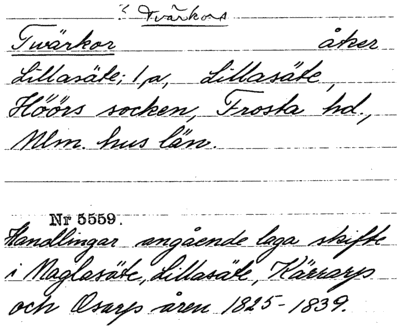 Tvärkors
Tvärkor åker
Lillasäte; 1,a, Lillasäte,
Höörs socken, Frosta hd.,
Mlm. hus län.
Nr 5559.
Handlingar angående laga skifte
i Maglasäte, Lillasäte, Kärrarp
och Osarp åren 1825-1839.